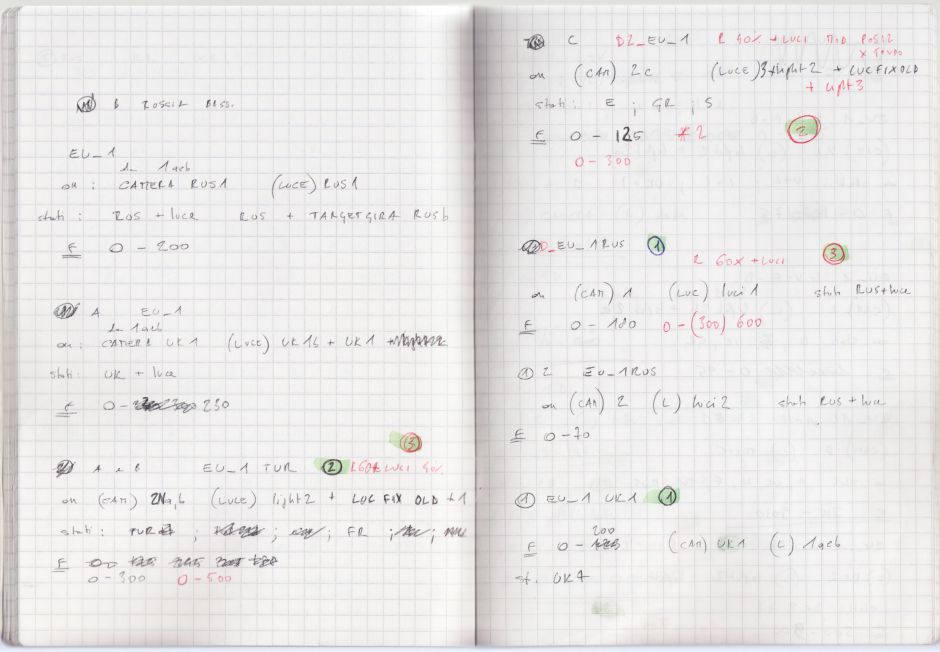 B ROSSIA BASS.
EU_1
da 1aeb
on : CAMERA RUS1 (LUCE) RUS1
stati : RUS + luce RUS + TARGETGIRA RUSb
F 0 - 200
A EU_1
da 1aeb
on : CAMERA UK1 (LUCE) UK1b + UK1
stati : UK + luce
F 0 - 230
3
A e B EU_1 TUR 2 R60% LUCI 40%
on (CAM) 2Na,b (LUCE) light2 + LUC FIX OLD +1
stati : TUR ; ; ; FR ; ;
F
0 - 300 0 - 500
C D2_EU_1 R 40% + LUCI MOD POSIZ
x TONDO
on (CAM) 2c (LUCE) 3+light2 + LUC FIX OLD
+ light 3
stati : E ; GR ; S
F 0 - 125 * 2 2
0 - 300
D_EU_1RUS 1
R 60% + LUCI 3
on (CAM) 1 (LUC) luci1 stati RUS+luce
F 0 - 180 0 - (300) 600
1 2 EU_1RUS
on (CAM) 2 (L) luci2 stati RUS + luce
F 0 - 70
1 EU_1 UK1 1
200
F 0 - (CAM) UK1 (L) 1aeb
st. UK1